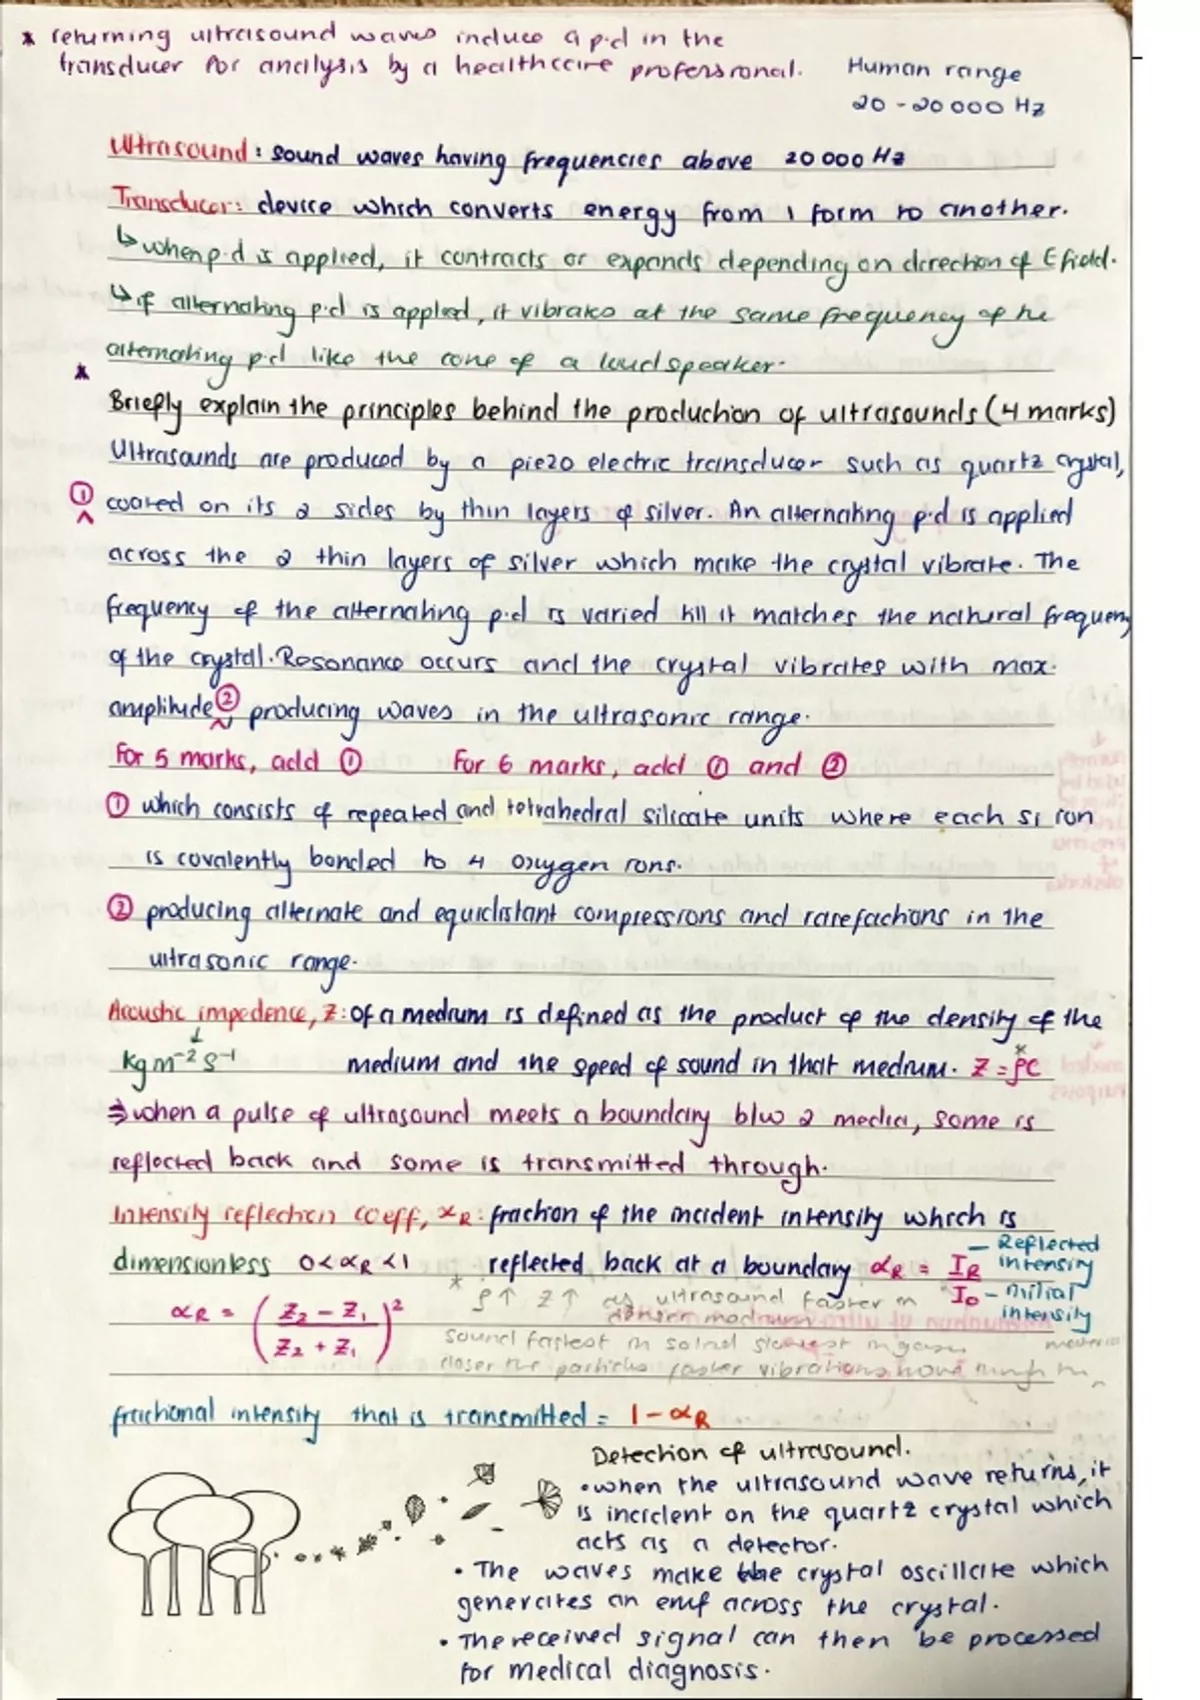 * returning ultrasound waves induce a p.d in the
transducer for analysis by a healthcare professional.
Human range
20 - 20 000 Hz
Ultrasound : sound waves having frequencies above 20 000 Hz
Transducer : device which converts energy from 1 form to another.
↳ when p.d is applied, it contracts or expands depending on direction of E field.
↳ if alternating p.d is applied, it vibrates at the same frequency of the
alternating p.d like the cone of a loudspeaker.
*
Briefly explain the principles behind the production of ultrasounds (4 marks)
Ultrasounds are produced by a piezo electric transducer such as quartz crystal,
① coated on its 2 sides by thin layers of silver. An alternating p.d is applied
across the 2 thin layers of silver which make the crystal vibrate. The
frequency of the alternating p.d is varied till it matches the natural frequency
of the crystal. Resonance occurs and the crystal vibrates with max.
amplitude ② producing waves in the ultrasonic range.
For 5 marks, add ① For 6 marks, add ① and ②
① which consists of repeated and tetrahedral silicate units where each Si ion
is covalently bonded to 4 oxygen ions.
② producing alternate and equidistant compressions and rarefactions in the
ultrasonic range.
Acoustic impedence, Z : of a medium is defined as the product of the density of the
kg m⁻² s⁻¹ medium and the speed of sound in that medium. Z = ρ*c
⇒ when a pulse of ultrasound meets a boundary b/w 2 media, some is
reflected back and some is transmitted through.
Intensity reflection coeff, αR : fraction of the incident intensity which is
dimensionless 0<αR<1 reflected back at a boundary αR = IR/I0
– Reflected intensity
– initial intensity
αR = ((Z2 – Z1)/(Z2 + Z1))²
* ρ↑ Z↑ as ultrasound faster in
denser medium
sound fastest in solid slowest in gases
closer the particles faster vibrations move
fractional intensity that is transmitted = 1 – αR
Detection of ultrasound.
• when the ultrasound wave returns, it
is incident on the quartz crystal which
acts as a detector.
• The waves make the crystal oscillate which
generates an emf across the crystal.
• The received signal can then be processed
for medical diagnosis.